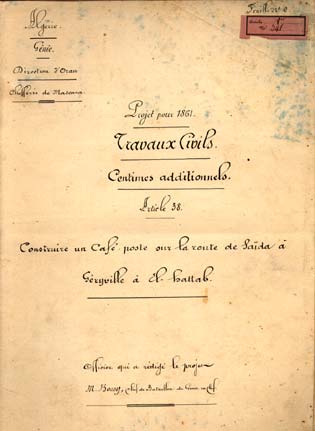 Algérie.
Génie.
Direction d'Oran
Chefferie de Mascara
Feuille N° 2
Article 1er
N° 38
Projet pour 1861.
Travaux Civils.
Centimes additionnels.
Article 38.
Construire un Café poste sur la route de Saïda à
Géryville à El-hattab.
Officier qui a rédigé le projet
M. Bourg, chef de Bataillon du Génie en Chef